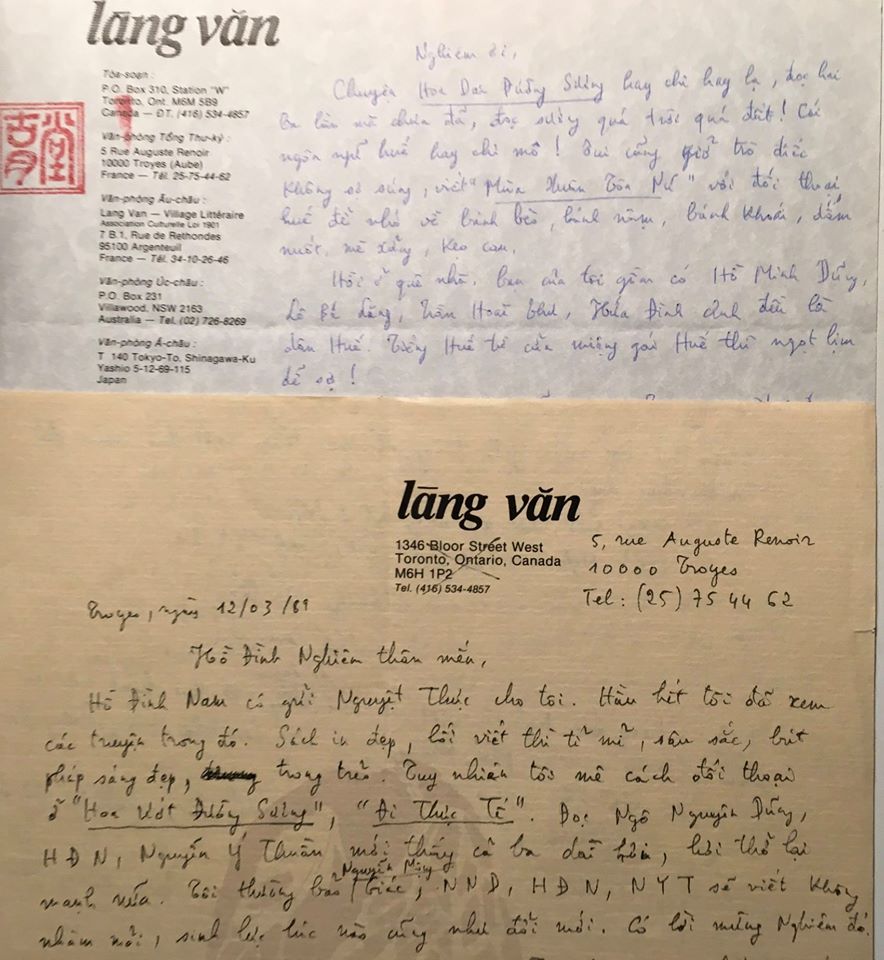 lāng văn
Tòa-soạn :
P.O. Box 310, Station "W"
Toronto, Ont. M6M 5B9
Canada — ĐT. (416) 534-4857
Văn-phòng Tổng Thư-ký :
5 Rue Auguste Renoir
10000 Troyes (Aube)
France — Tél. 25-75-44-62
Văn-phòng Âu-châu :
Lang Van — Village Littéraire
Association Culturelle Loi 1901
7 B.1, Rue de Rethondes
95100 Argenteuil
France — Tél. 34-10-26-46
Văn-phòng Úc-châu :
P.O. Box 231
Villawood, NSW 2163
Australia — Tel. (02) 726-8269
Văn-phòng Á-châu :
T 140 Tokyo-To, Shinagawa-Ku
Yashio 5-12-69-115
Japan
Nghiêm ơi,
Chuyện Hoa Dại Đường Sương hay chi hay lạ, đọc hai
ba lần mà chưa đã, đọc sướng quá trời quá đất! Cái
ngôn ngữ huế hay chi mô! Tui cũng giở trò điếc
không sợ súng, viết "Mùa Xuân Tôn Nữ" với đối thoại
huế để nhớ về bánh bèo, bánh nậm, bánh khoái, dấm
nuốt, mè xửng, kẹo cau.
Hồi ở quê nhà, bạn của tôi gồm có Hồ Minh Dũng,
Lê Bá Lăng, Trần Hoài Thư, Hứa Đình Anh đều là
dân Huế. Tiếng Huế từ cửa miệng gái Huế thì ngọt lịm
dễ sợ!
lāng văn
1346 Bloor Street West
Toronto, Ontario, Canada
M6H 1P2
Tel. (416) 534-4857
5, rue Auguste Renoir
10000 Troyes
Tel : (25) 75 44 62
Troyes, ngày 12/03/89
Hồ Đình Nghiêm thân mến,
Hồ Đình Nam có gửi Nguyệt Thực cho tôi. Hầu hết tôi đã xem
các truyện trong đó. Sách in đẹp, lối viết thì tỉ mỉ, sâu sắc, bút
pháp sáng đẹp, trong trẻo. Tuy nhiên tôi mê cách đối thoại
ở "Hoa Ướt Đường Sương", "Đi Thực Tế". Đọc Ngô Nguyên Dũng,
HĐN, Nguyễn Ý Thuần mới thấy cả ba dài hơi, hơi thở lại
mạnh nữa. Tôi thường bảo Nguyễn Mộng Giác, NND, HĐN, NYT sẽ viết không
nhàm mỏi, sinh lực lúc nào cũng như đổi mới. Có lời mừng Nghiêm đó.